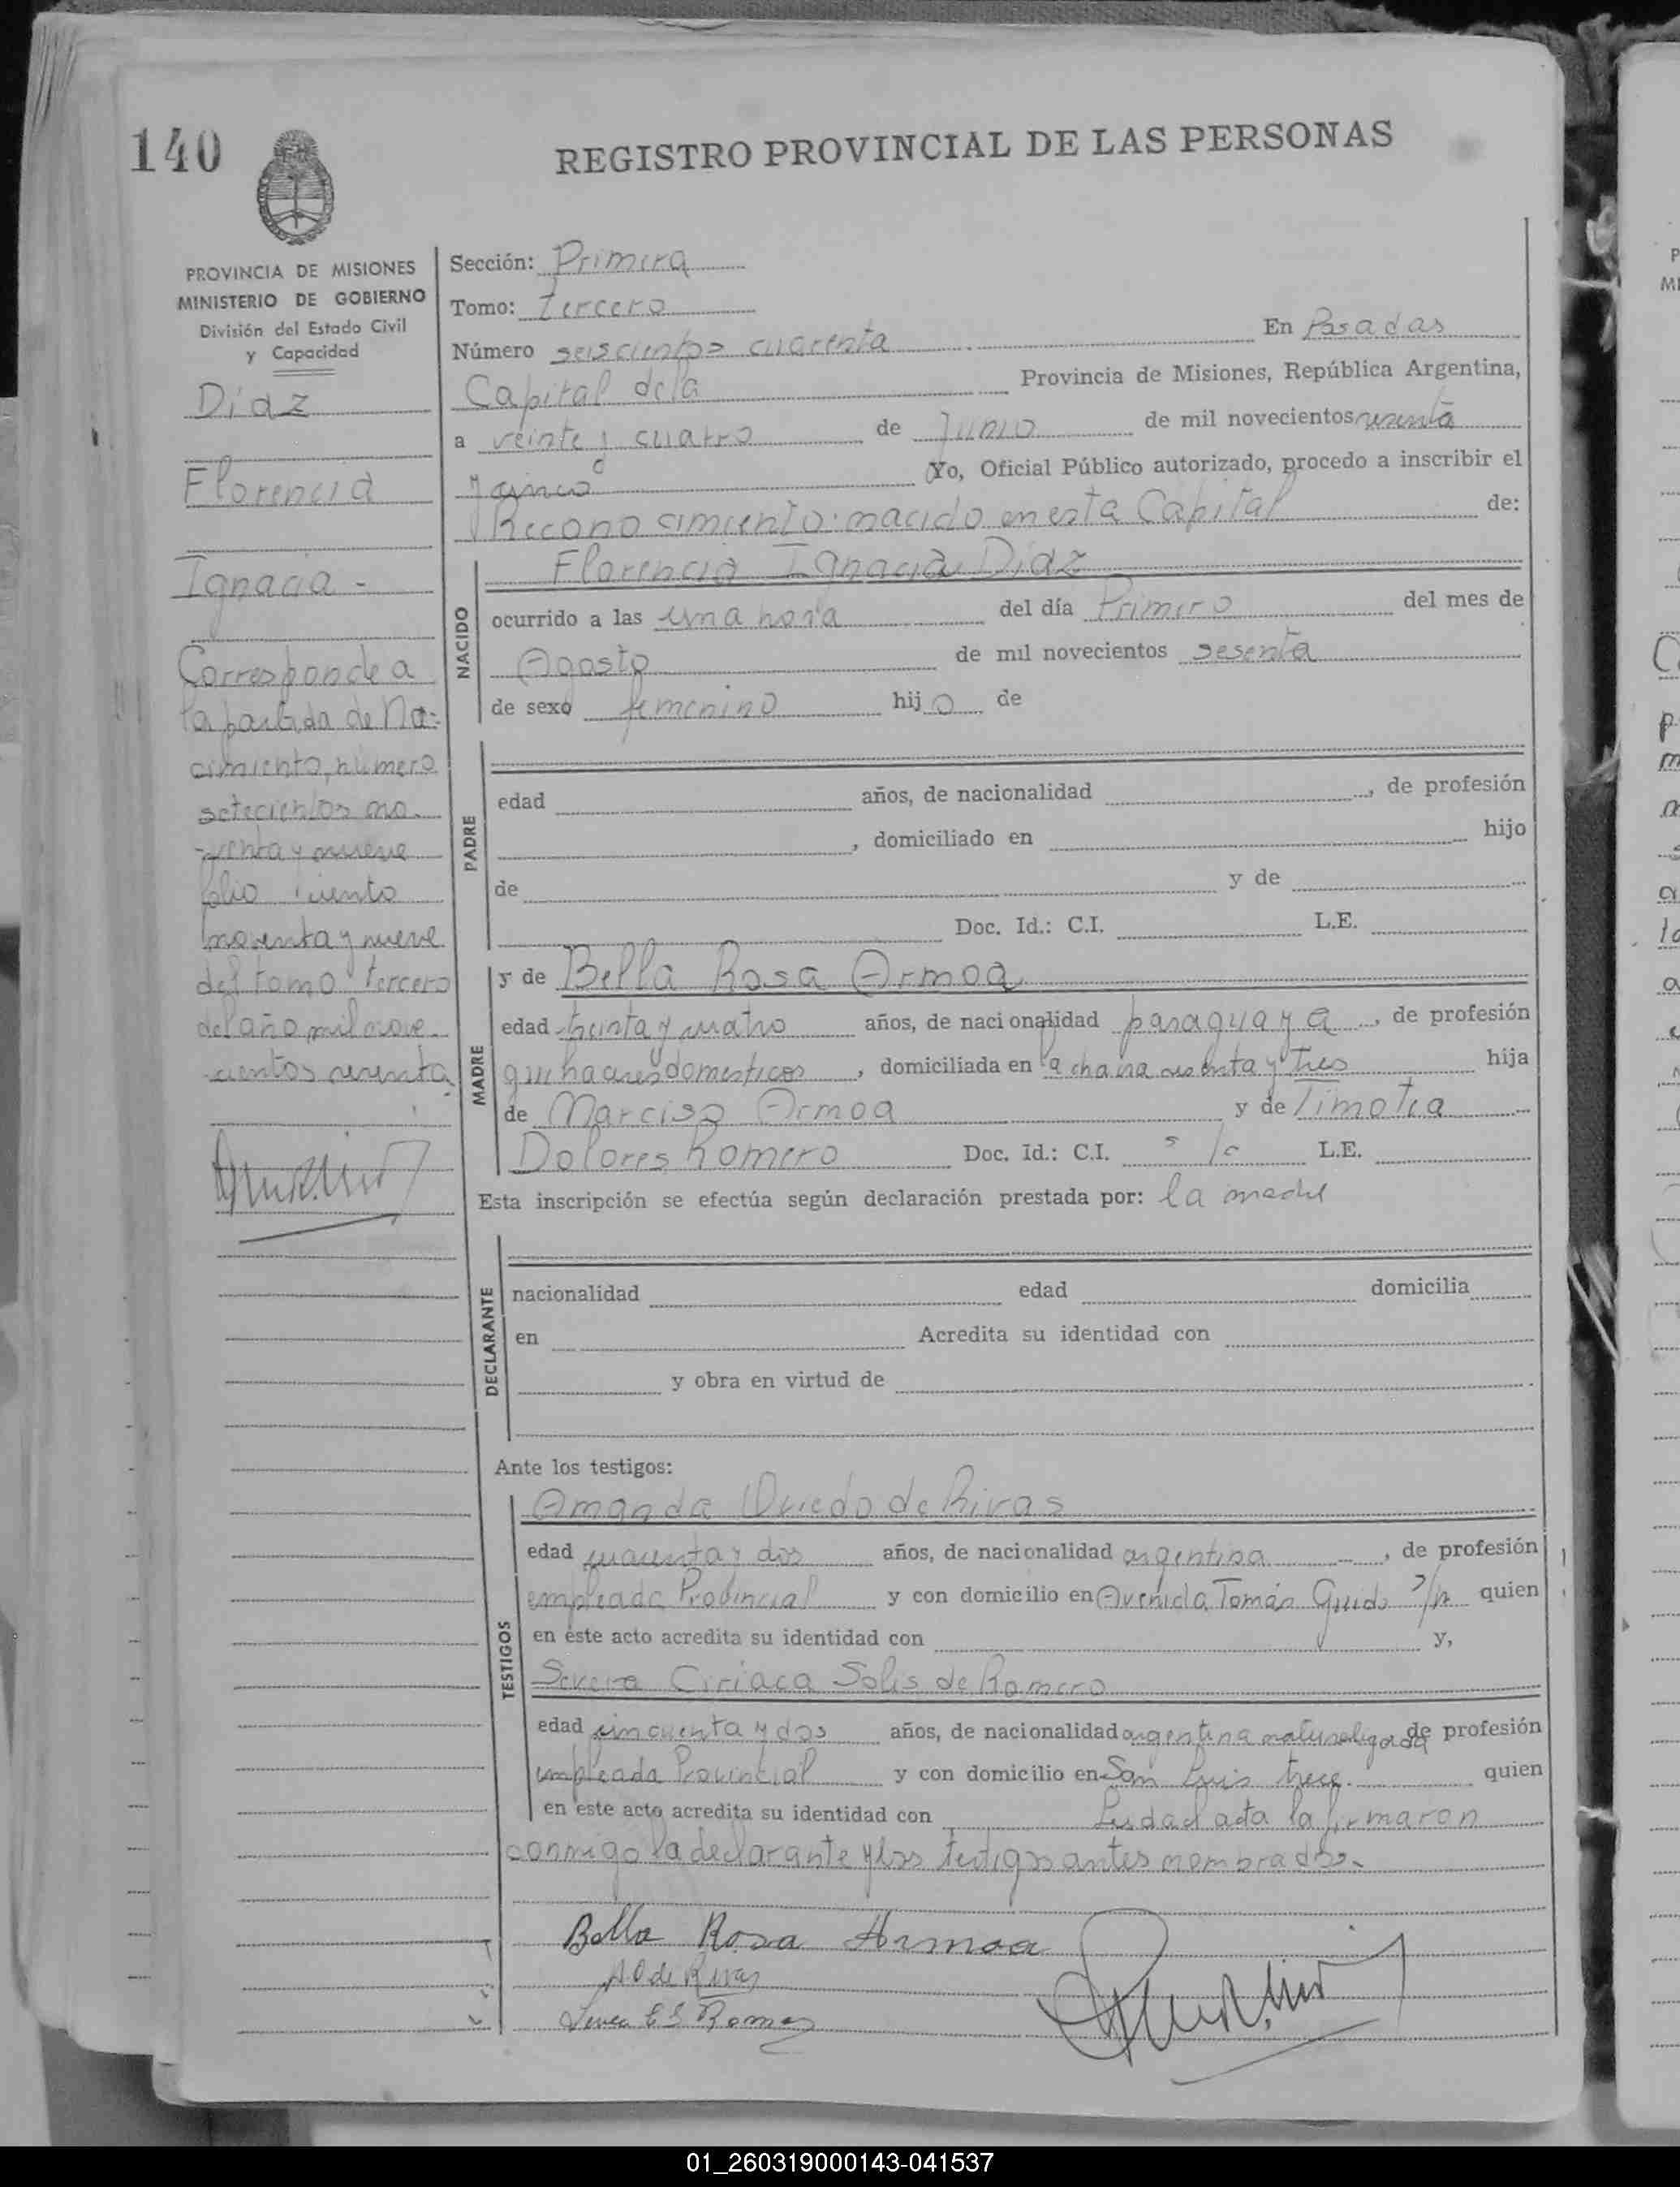 140
REGISTRO PROVINCIAL DE LAS PERSONAS
PROVINCIA DE MISIONES
MINISTERIO DE GOBIERNO
División del Estado Civil
y Capacidad
Díaz
Florencia
Ignacia -
Corresponde a
la partida de Na-
cimiento, número
setecientos no-
venta y nueve
folio ciento
noventa y nueve
del tomo tercero
del año mil nove-
cientos sesenta
Sección: Primera
Tomo: Tercero
Número seiscientos cuarenta En Posadas
Capital de la Provincia de Misiones, República Argentina,
a veinte y cuatro de Junio de mil novecientos sesenta
y cinco Yo, Oficial Público autorizado, procedo a inscribir el
Reconosimiento: nacido en esta Capital de:
NACIDO
Florencia Ignacia Díaz
ocurrido a las una hora del día Primero del mes de
Agosto de mil novecientos sesenta
de sexo femenino hijo de
PADRE
edad años, de nacionalidad , de profesión
, domiciliado en hijo
de y de
Doc. Id.: C.I. L.E.
MADRE
y de Bella Rosa Armoa
edad treinta y cuatro años, de nacionalidad paraguaya, de profesión
quehaceres domesticos, domiciliada en la chacra sesenta y tres hija
de Marciso Armoa y de Timotea
Dolores Romero Doc. Id.: C.I. s/c L.E.
Esta inscripción se efectúa según declaración prestada por: la madre
DECLARANTE
nacionalidad edad domicilia
en Acredita su identidad con
y obra en virtud de
Ante los testigos:
TESTIGOS
Amanda Oviedo de Rivas
edad cuarenta y dos años, de nacionalidad argentina, de profesión
empleada Provincial y con domicilio en Avenida Tomás Guido s/n quien
en este acto acredita su identidad con y,
Severa Ciriaca Solis de Romero
edad cincuenta y dos años, de nacionalidad argentina naturalizada de profesión
empleada Provincial y con domicilio en San Luis trece. quien
en este acto acredita su identidad con Leida el acta la firmaron
conmigo la declarante y los testigos antes nombrados.
Bella Rosa Armoa
A O de Rivas
01_260319000143-041537